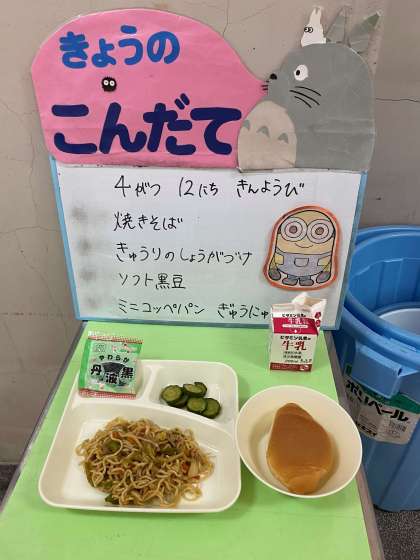 きょうの
こんだて
4がつ 12にち きんようび
焼きそば
きゅうりのしょうがづけ
ソフト黒豆
ミニコッペパン ぎゅうにゅ
やわらか
丹波黒
ビタミン乳業の
牛乳
ビタミン乳業の
牛乳
ポリペール